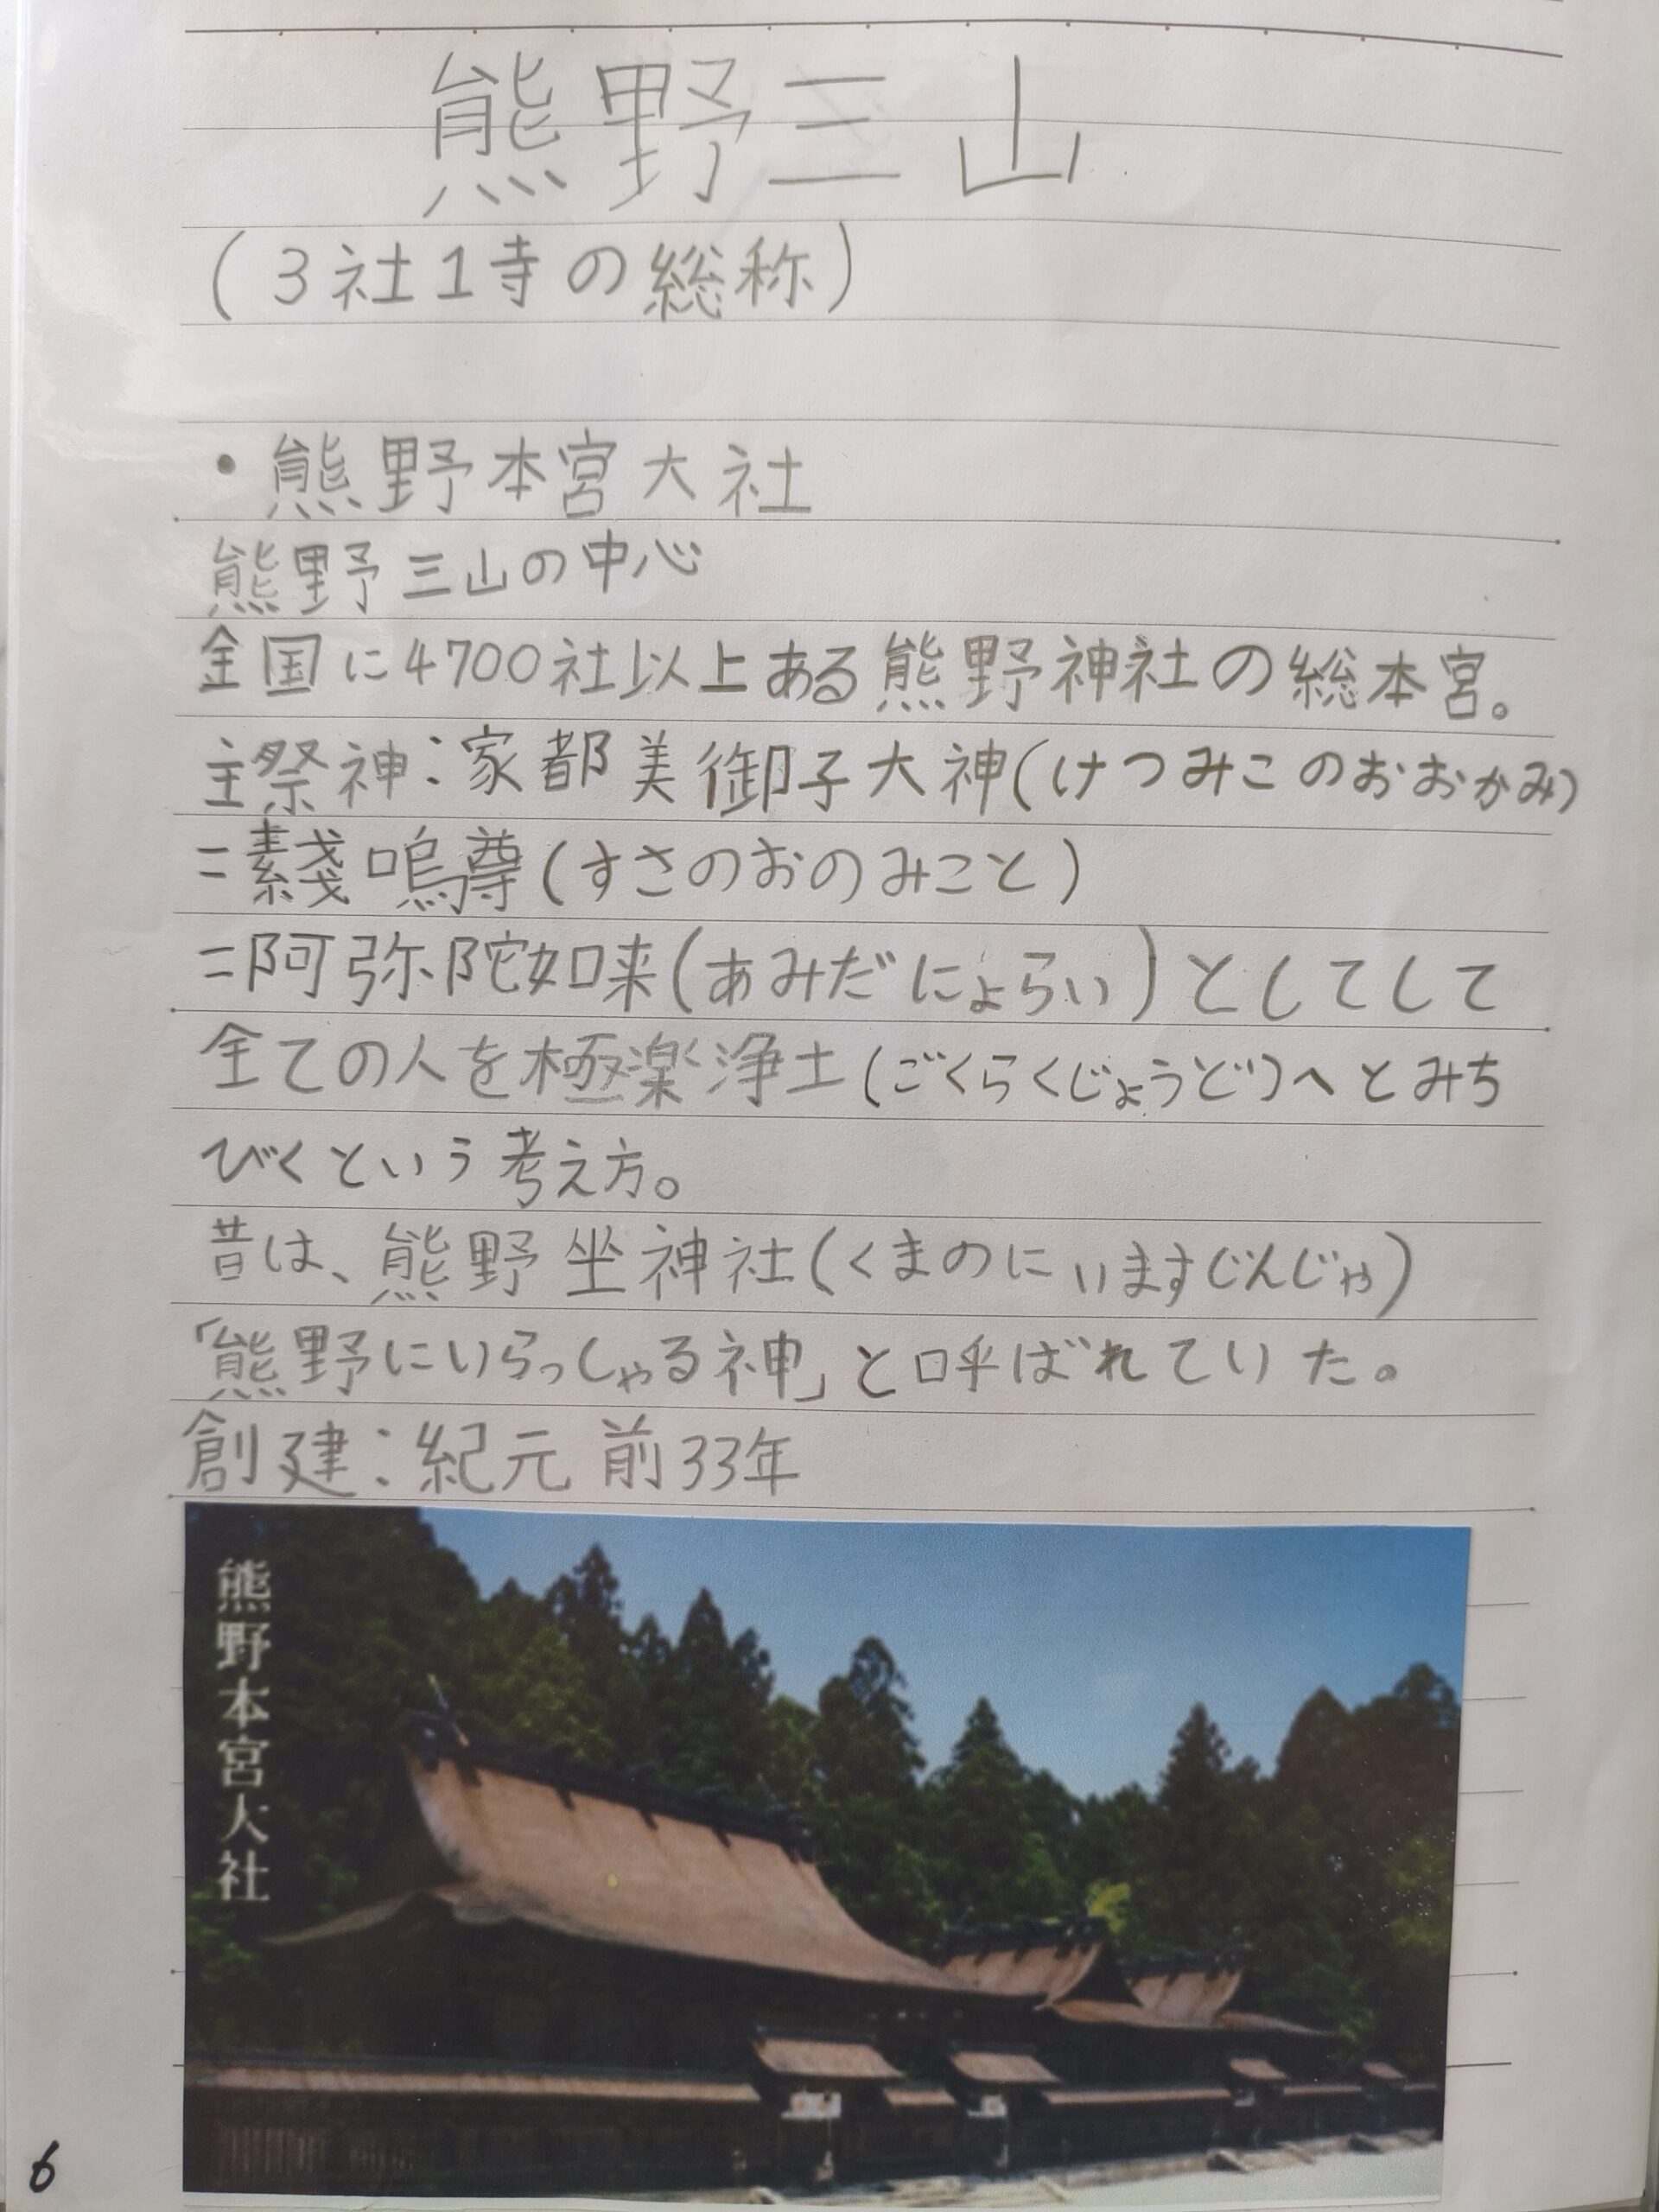 熊野三山
(3社1寺の総称)
・熊野本宮大社
熊野三山の中心
全国に4700社以上ある熊野神社の総本宮。
主祭神:家都美御子大神(けつみこのおおかみ)
=素戔嗚尊(すさのおのみこと)
=阿弥陀如来(あみだにょらい)としてして
全ての人を極楽浄土(ごくらくじょうど)へとみち
びくという考え方。
昔は、熊野坐神社(くまのにいますじんじゃ)
「熊野にいらっしゃる神」と呼ばれていた。
創建:紀元前33年
熊野本宮大社
6